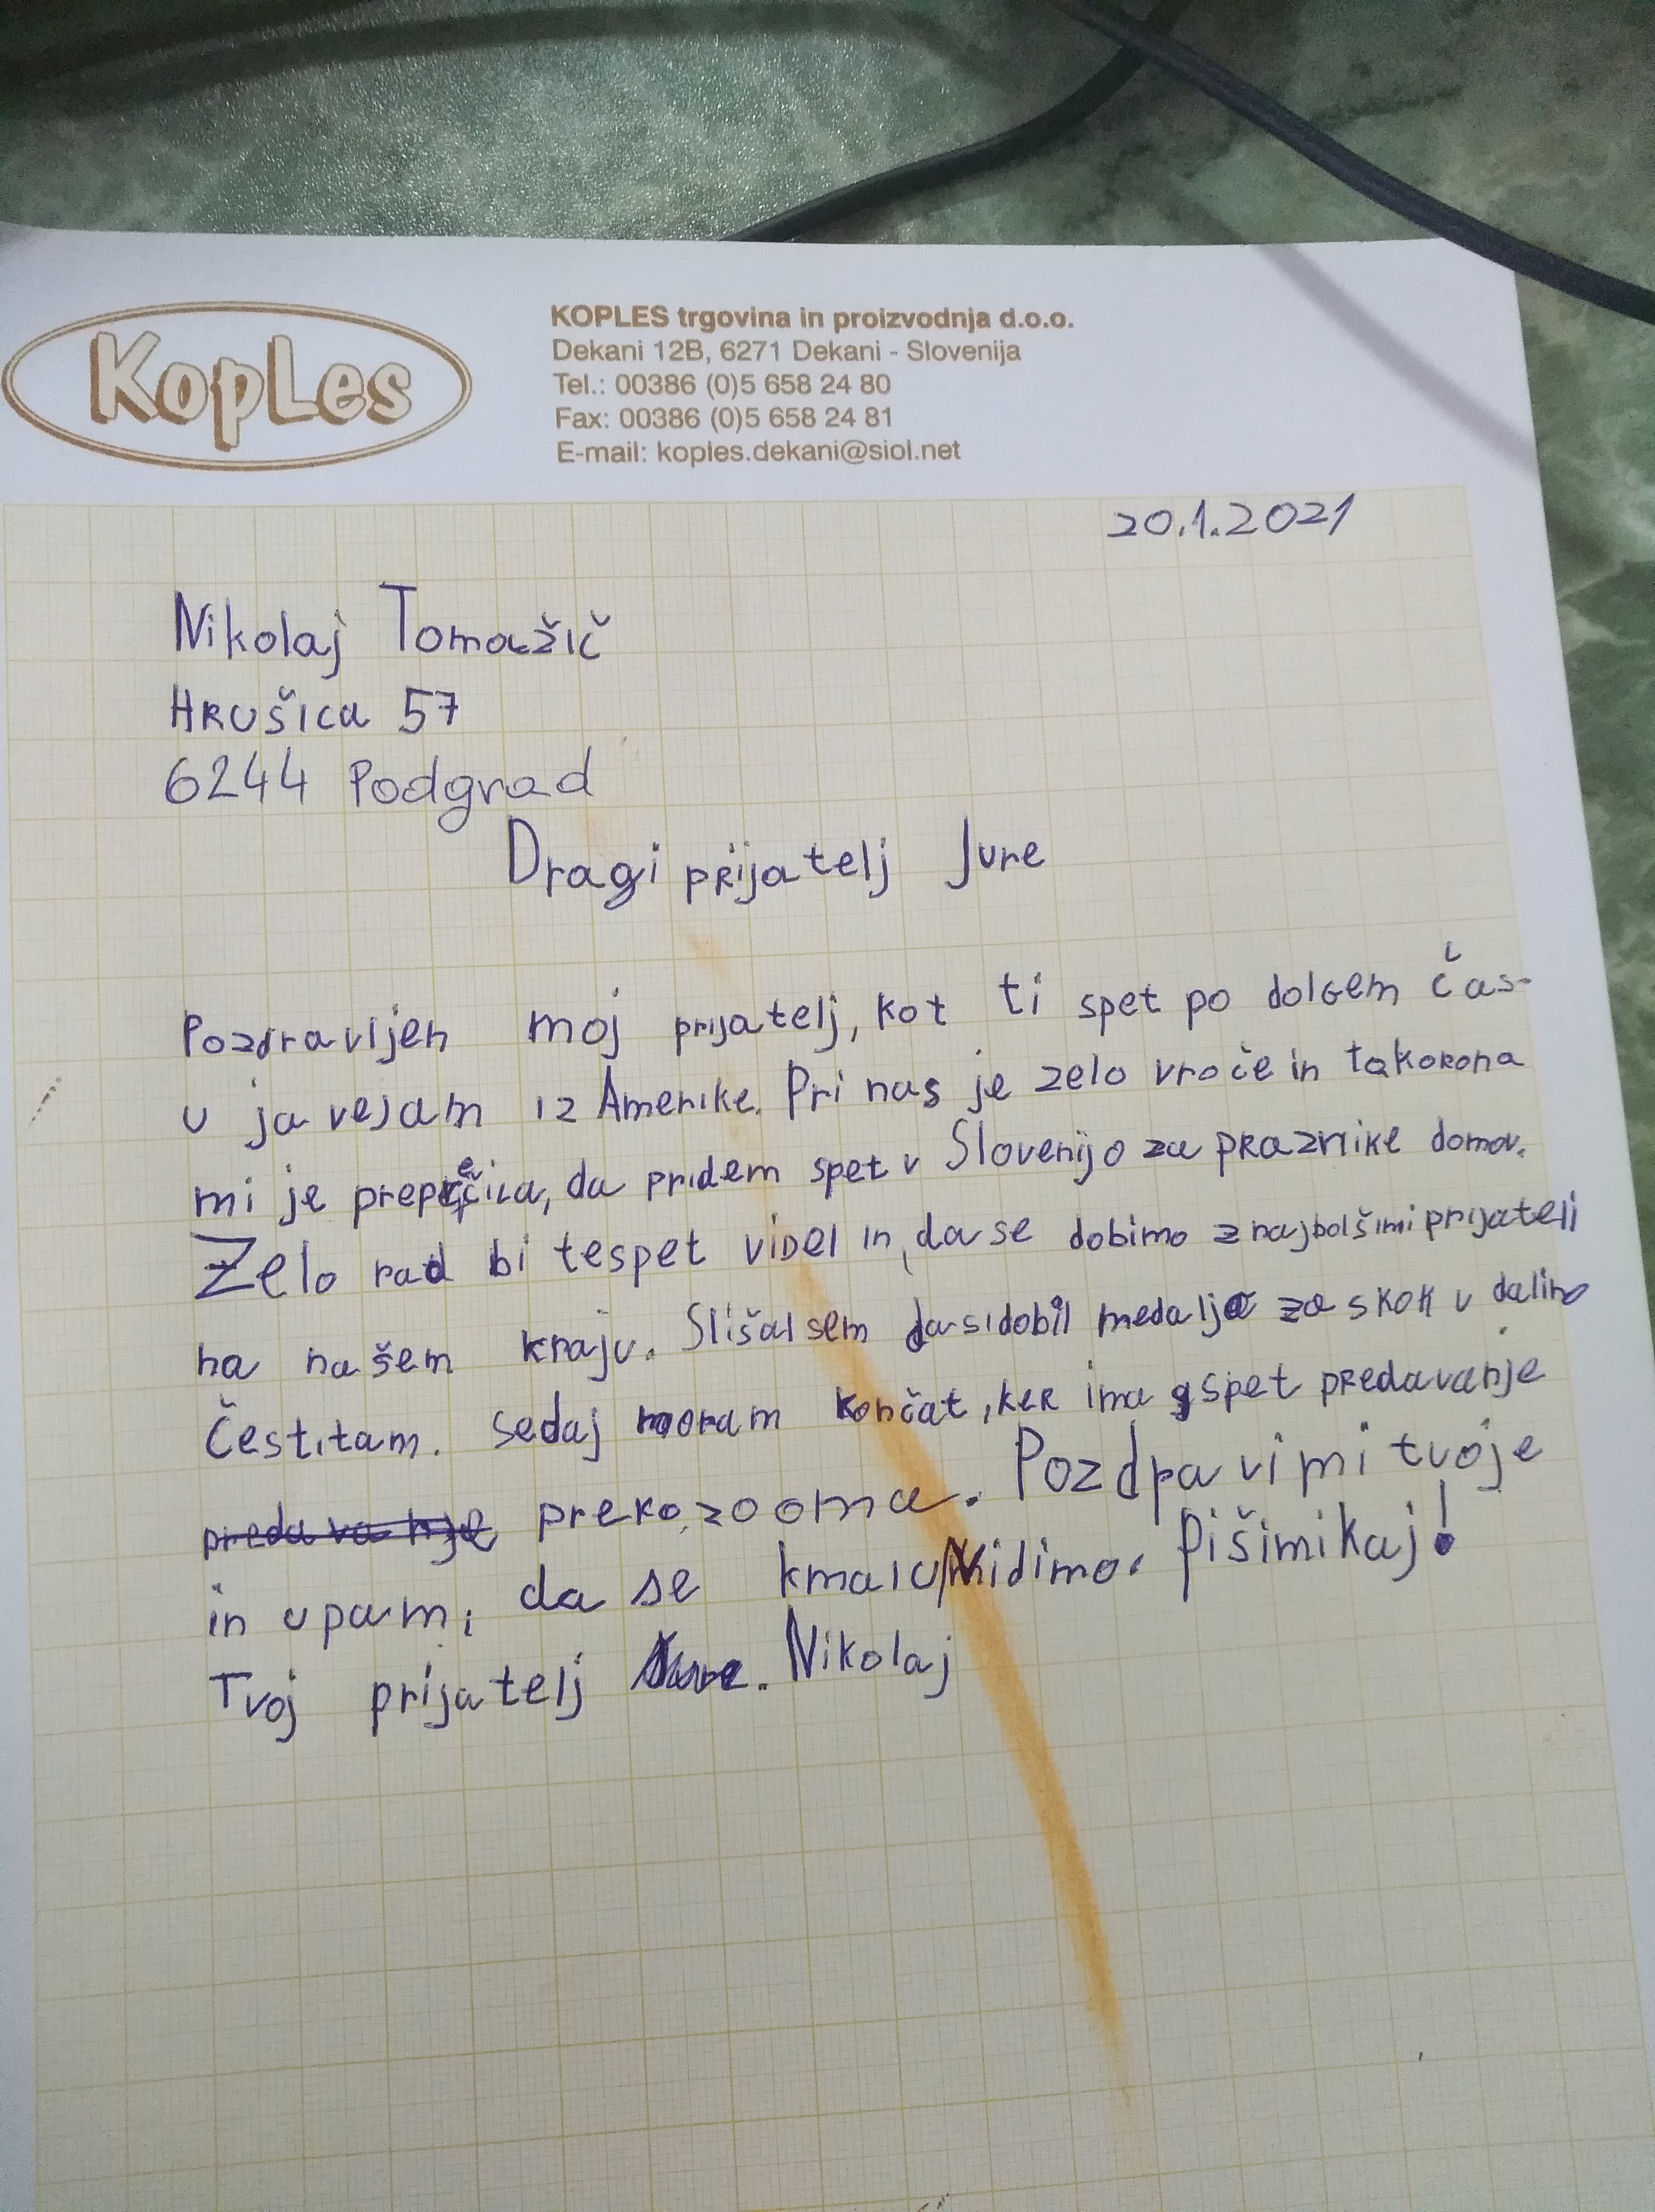 KopLes
KOPLES trgovina in proizvodnja d.o.o.
Dekani 12B, 6271 Dekani - Slovenija
Tel.: 00386 (0)5 658 24 80
Fax: 00386 (0)5 658 24 81
E-mail: koples.dekani@siol.net
20.1.2021
Nikolaj Tomažič
Hrušica 57
6244 Podgrad
Dragi prijatelj Jure
Pozdravljen moj prijatelj, kot ti spet po dolgem čas-
u javejam iz Amerike. Pri nas je zelo vroče in ta korona
mi je preprečila, da pridem spet v Slovenijo za praznike domov.
Zelo rad bi te spet videl in, da se dobimo z najbolšimi prijatelji
na našem kraju. Slišal sem da si dobil medaljo za skok v daljino
Čestitam. sedaj moram končat, ker ima spet predavanje
predavanje preko zooma. Pozdravi mi tvoje
in upam, da se kmalu vidimo. Piši mi kaj!
Tvoj prijatelj Jure. Nikolaj